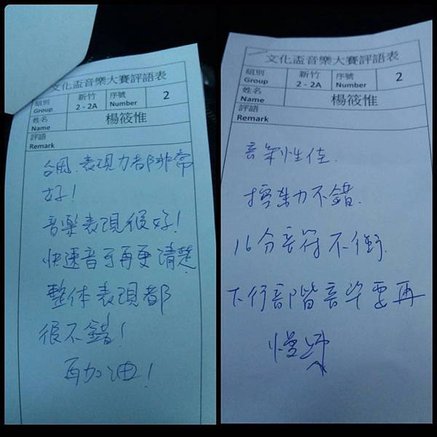 文化盃音樂大賽評語表
組別 新竹 序號 2
Group 2 - 2A Number
姓名 楊筱惟
Name
評語
Remark
台風、表現力都非常
好!
音樂表現很好!
快速音可再更清楚
整体表現都
很不錯!
再加油!
文化盃音樂大賽評語表
組別 新竹 序號 2
Group 2 - 2A Number
姓名 楊筱惟
Name
評語
Remark
音樂性佳.
彈奏力不錯.
16分音符不衝.
下行音階音
要再